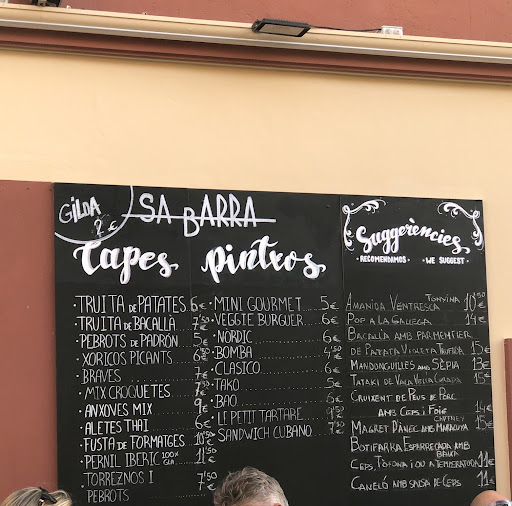 GILDA
2€
SA BARRA
Tapes
TRUITA de PATATES 6€
TRUITA de BACALLÀ 7'50€
PEBROTS de PADRÓN 5€
XORICOS PICANTS 6'50€
BRAVES 7€
MIX CROQUETES 7'50€
ANXOVES MIX 9€
ALETES THAI 6€
FUSTA de FORMATGES 10'50€
PERNIL IBERIC 100% GLA 11'50€
TORREZNOS I 7'50€
PEBROTS
Pintxos
MINI GOURMET 5€
VEGGIE BURGUER 6€
NÒRDIC 6€
BOMBA 4'50€
CLASICO 6€
TAKO 5€
BAO 6€
LE PETIT TARTARE 9'50€
SANDWICH CUBANO 7'50€
Suggerències
RECOMENDAMOS · WE SUGGEST
AMANIDA VENTRESCA TONYINA 10'50€
POP A LA GALLEGA 14€
BACALLÀ AMB PARMENTIER
DE PATATA VIOLETA TRUFADA 15€
MANDONGUILLES AMB SÈPIA 13€
TATAKI DE VACA VELLA 15€
CRUIXENT DE PEUS DE PORC
AMB CEPS I FOIE 14€
MAGRET D'ÀNEC AMB CHUTNEY MARACUYA 15€
BOTIFARRA ESPARRACADA AMB
CEPS, POFONA I OU A BAIXA TEMPERATURA 11€
CANELÓ AMB SALSA DE CEPS 11€